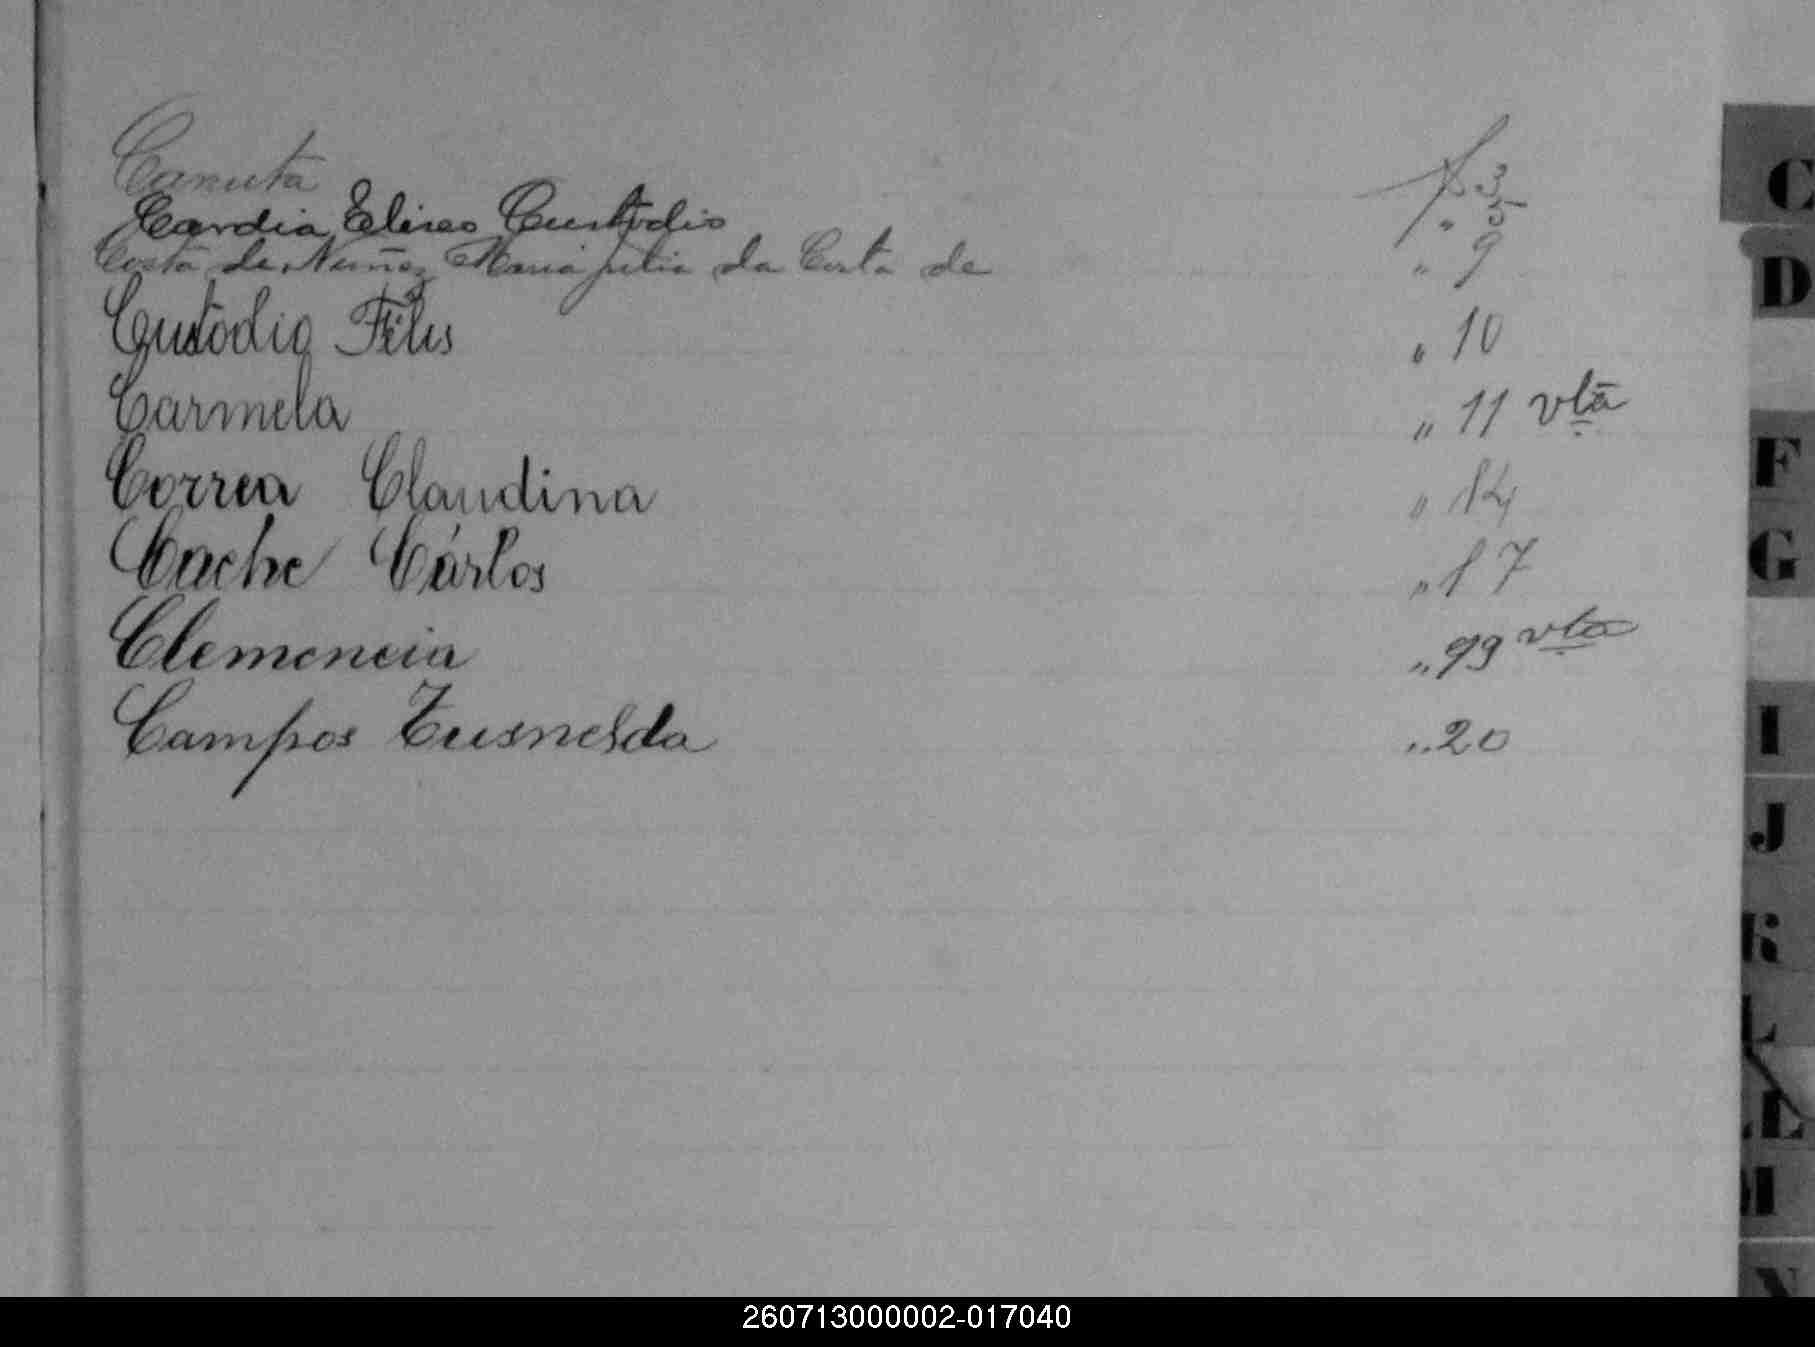 Canuta f 3
Cardia Eliseo Custodio " 5
Costa de Nuñez Maria Julia da Costa de " 9
Custodio Félis " 10
Carmela " 11 vta
Correa Claudina " 14
Cache Cárlos " 17
Clemencia " 99 vta
Campos Tusnelda " 20
C
D
F
G
I
J
K
L
LL
M
N
260713000002-017040